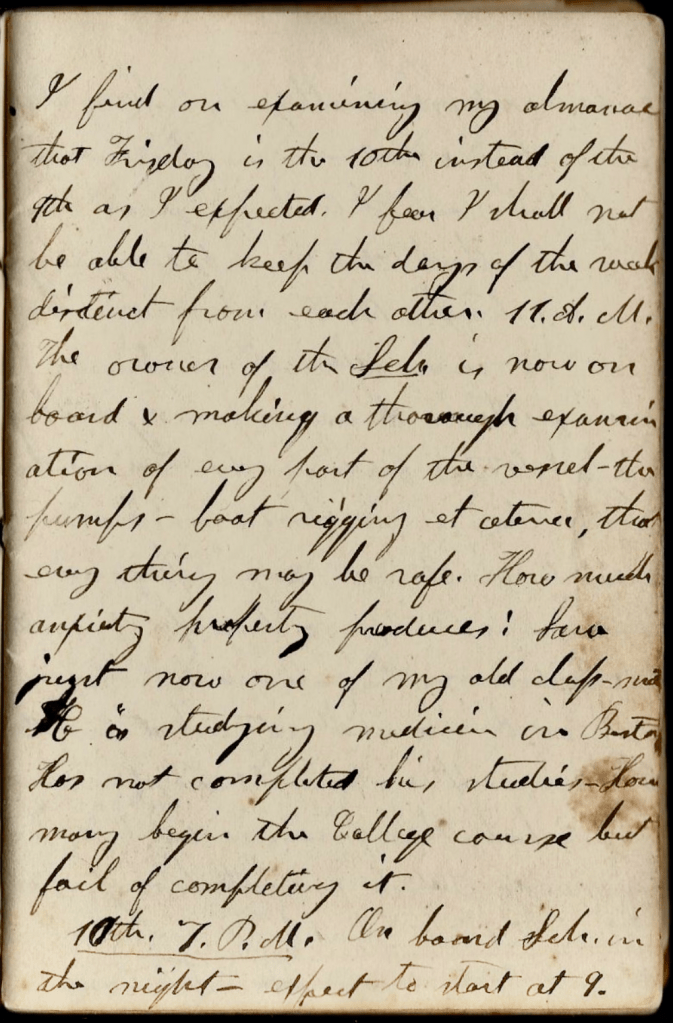 I find on examining my almanac
that Friday is the 10th instead of the
9th as I expected. I fear I shall not
be able to keep the days of the week
distinct from each other. 11. A. M.
The owner of the Sch. is now on
board & making a thorough examin
ation of every part of the vessel - the
pumps - boat rigging et cetera, that
every thing may be safe. How much
anxiety property produces! Saw
just now one of my old class-mates
He is studying medicine in Boston
Has not completed his studies - How
many begin the College course but
fail of completing it.
10th. 7. P. M. On board Sch. in
the night - expect to start at 9.